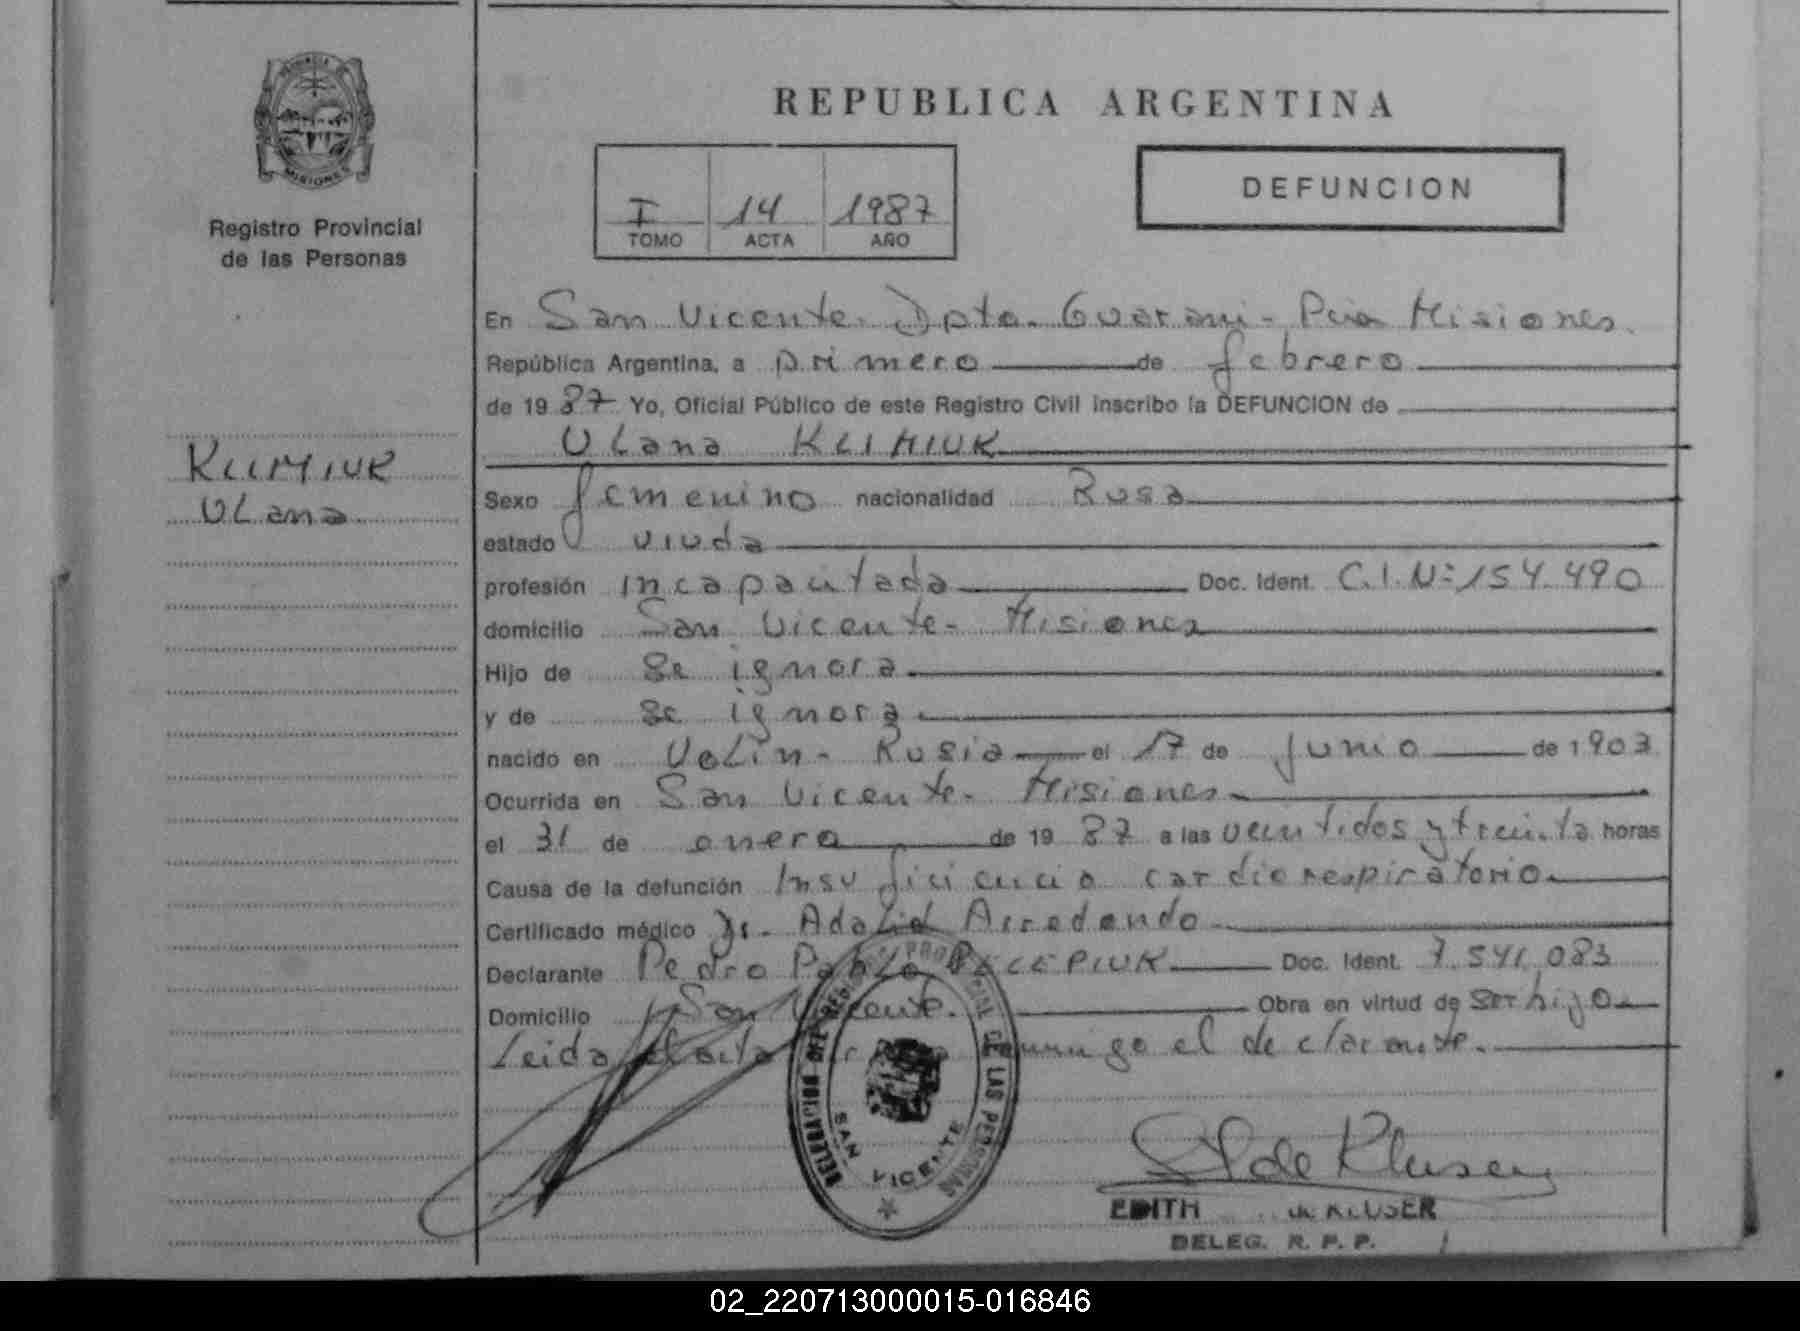 PROVINCIA DE
MISIONES
Registro Provincial
de las Personas
KLIMIUK
ULana
REPUBLICA ARGENTINA
I 14 1987
TOMO ACTA AÑO
DEFUNCION
En San Vicente. Dpto. Guarani - Pcia Misiones.
República Argentina, a primero de febrero
de 1987 Yo, Oficial Público de este Registro Civil inscribo la DEFUNCION de
ULana KLIMIUK
Sexo femenino nacionalidad Rusa
estado viuda
profesión Incapacitada Doc. Ident. C.I. Nº 154.490
domicilio San Vicente - Misiones
Hijo de se ignora
y de se ignora
nacido en VoLin - Rusia el 17 de junio de 1903
Ocurrida en San Vicente - Misiones
el 31 de enero de 1987 a las veintidos y treinta horas
Causa de la defunción Insuficiencia cardiorespiratorio
Certificado médico Dr. Adalid Arredondo
Declarante Pedro Pablo PELEPIUK Doc. Ident. 7.541.083
Domicilio San Vicente. Obra en virtud de ser hijo
Leida el acta conmigo el declarante.
DELEGACION DEL REGISTRO PROVINCIAL DE LAS PERSONAS
SAN VICENTE
de Kluser
EDITH de KLUSER
DELEG. R. P. P.
02_220713000015-016846